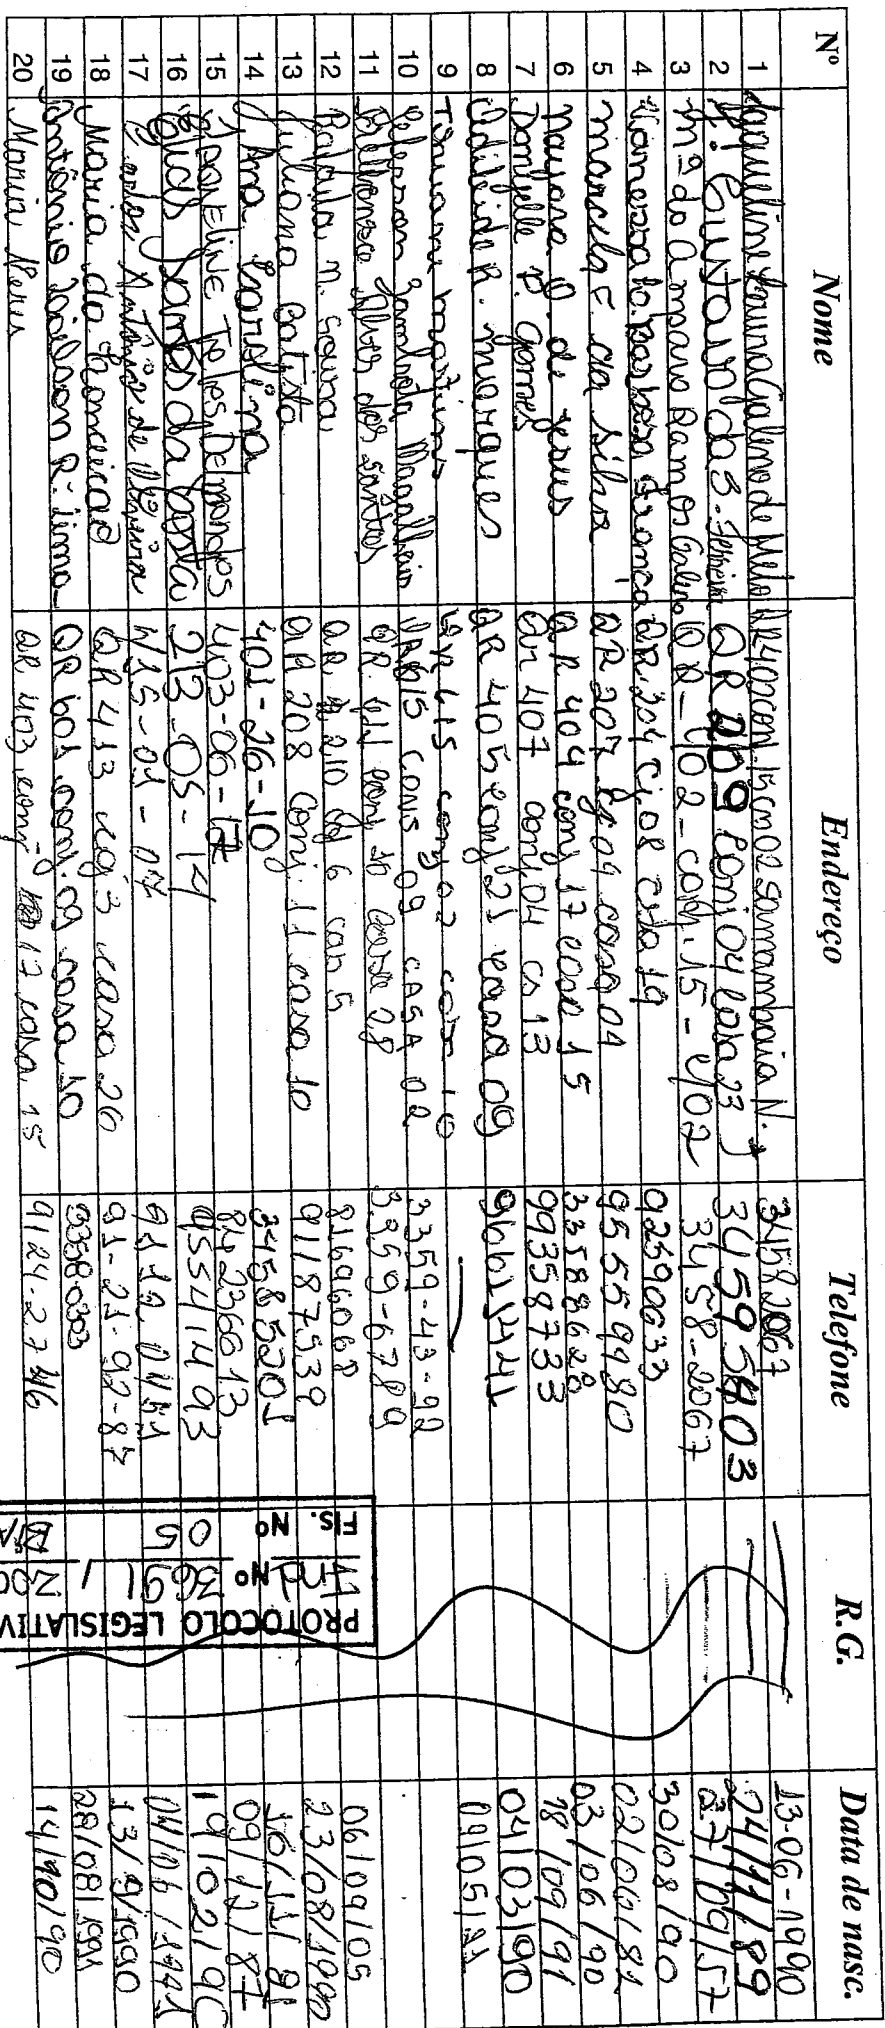 Nº Nome Endereço Telefone R.G. Data de nasc.
1 Jaqueline Galeno de Melo QR 402 conj. 15 cs 02 Samambaia N. 34582067 13-06-1990
2 Gustavo da S. QR 209 conj 04 casa 23 34595803 24/11/89
3 Mª do Amparo Ramos Galeno QR-402-conj.15-c/02 3458-2067 27/09/57
4 Vanessa barbosa França QR 304 cj 08 casa 19 92390633 30/08/90
5 marcela F. da Silva QR 207 cj 04 casa 04 95559980 02/06/82
6 Nayara O. de Jesus QR 404 conj 17 casa 15 33588628 03/06/90
7 Danyelle P. Gomes Qn 407 conj 04 cs 13 99358733 18/09/91
8 Odileide R. marques QR 405 conj 21 casa 09 96614441 04/03/90
9 martins QR 615 conj 02 casa 10 09/05/
10 Magalhães QR 615 CONJ 09 CASA 02 3359-43-92
11 Alves dos Santos QR. 411 conj. 10 casa 28 3359-6789
12 n. souza QR 210 cj 6 cas 5 81696068 06/09/05
13 Juliana Batista QR 208 Conj. 11 casa 10 91187539 23/08/1990
14 Ana Carolina 401-26-10 34585201 16/11/81
15 JAQUELINE Teles De mendes 403-06-17 84236613 09/12/87
16 Elias Santos da Costa 213-05-14 95541493 19/02/90
17 Carlos Antônio de Oliveira 415-01-07 9112 0451 04/06/1991
18 Maria da Conceicao QR 413 cj 3 casa 26 91-21-92-87 13/9/1990
19 Antônio R. Lima QR 601 conj. 09 casa 10 33580303 28/08/1991
20 Maria Neres QR 403 conj 17 casa 15 9124-2746 14/10/90
PROTOCOLO LEGISLATIV
Ind Nº 3691 / 200
FIS. Nº 05